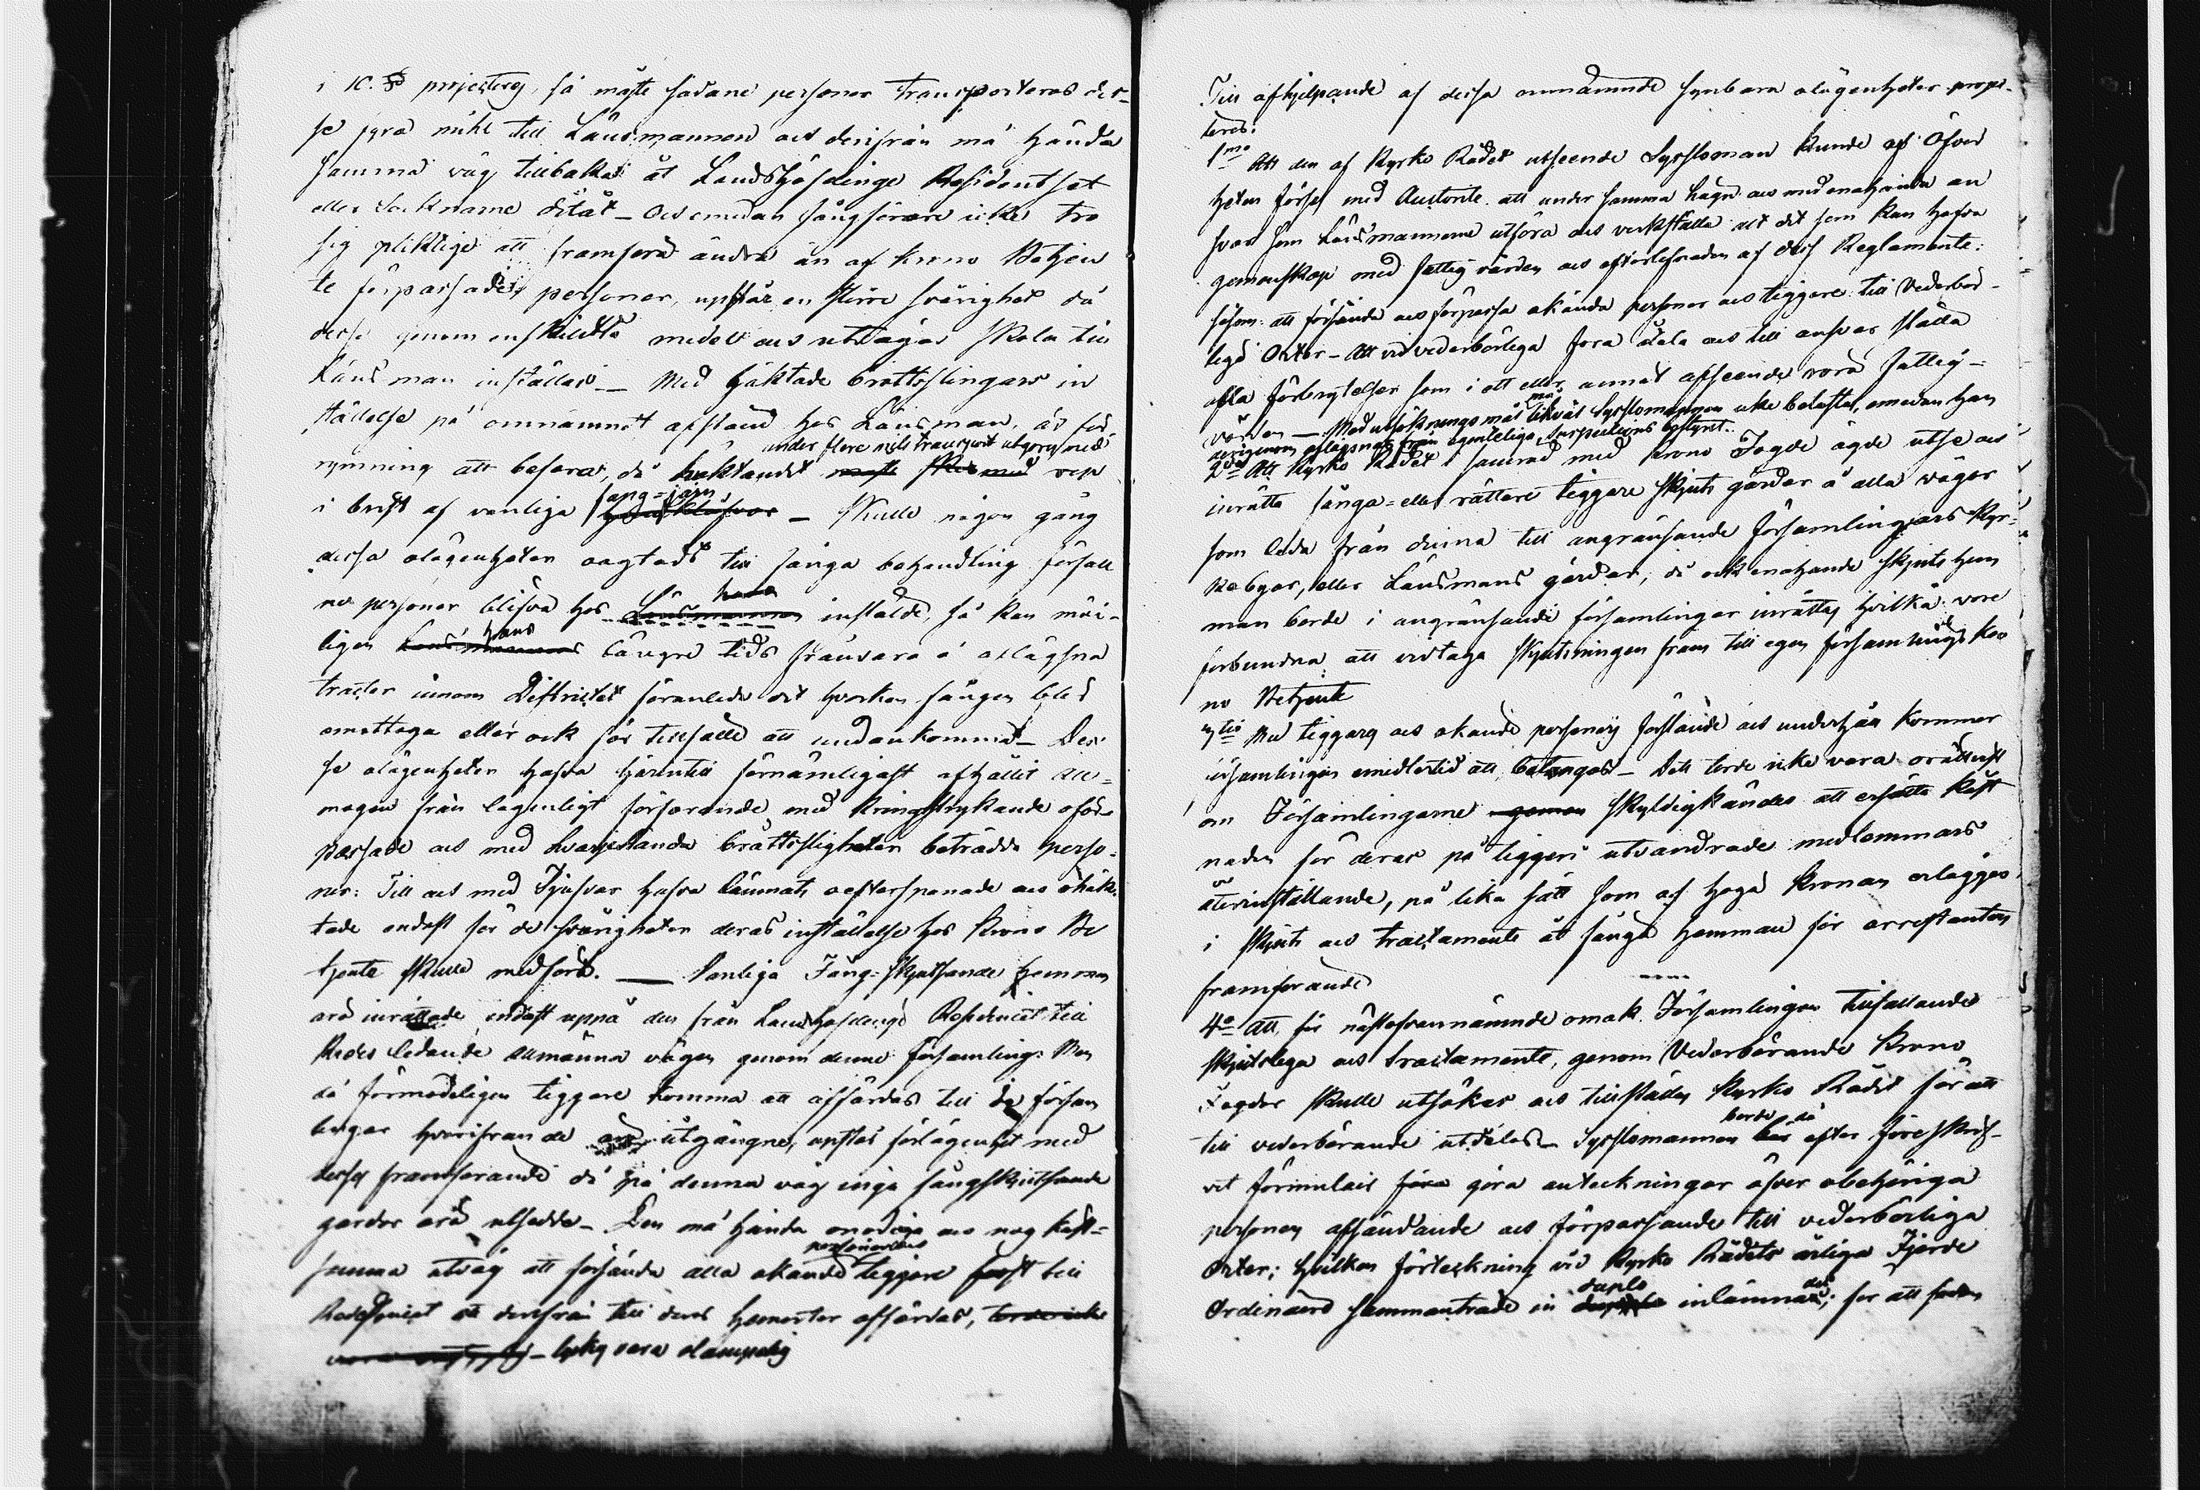 i 10. § projecterej, så måste sådane personer transporteras des-
se fyra mihl till Länsmannen och derifrån må hända
samma väg tillbakka åt Landshöfdinge Residentset
eller Socknarne ditåt – Och emedan fångförare icke tro
sig pliktige att framföra andra än af krono Betjen
te förpassade personer, uppstår en större svårighet då
desse genom enskildta medel och utvägar skola till
Länsman inställas. – Med häktade brottslingars in
ställelse på omnämnt afstånd hos Länsman, är för
under flere mils transport
rymning att befara, då häktandet måste skie med rep
fång-järn
i brist af vanliga handklåfvar – Skulle någon gång
dessa olägenheter oagtadt till fånga behandling förfall
ne personer blifva hos Länsmannen instälde, så kan möi-
hans
ligen Länsmannens längre tids frånvaro å aflägsna
tracter innom Districtet föranleda det hvarken fången blef
emottagen eller ock får tillfälle att undankomma – Des-
se olägenheter hafva härintill förnämligast afhållit All-
mogen från lagenligt förfarande med kringstrykande oför-
passade och med hvarjehanda brottsligheter beträdda perso-
ner: Till och med Tjufvar hafva lämnats oefterspanade och ohäk-
tade endast för de svårigheter deras inställelse hos Krono Be
tjente skulle medföra. – Vanliga Fång-skjutsande hemman
äro inrättade endast uppå den från Landshöfdinge Residentet till
Kyrko ledande allmänna vägen genom denne församling. Men
då förmodeligen tiggare komma att affärdas till de försam
lingar hvarifrån de utgångne, upstår förlägenhet med
desses framförande då på denna väg inga fångskjutsande
gårdar äro utsedde – Den må hända onödiga och nog kost-
personer och
samma utväg att försända alla okände tiggare först till
Residencet att derifrån till deras hemorter affärdas, torde icke
vara – lycka vara olämpelig
Till afhjelpande af dessa omnämnde synbara olägenheter propo-
neras:
1mo Att den af Kyrko Rådet utseende Syssloman kunde af Öfver
heten förses med Auctorite att under samma hägn och med enahanda an
svar som Länsmannerne utföra och verkställa allt det som kan hafva
gemenskap med fattigvården och efterlefnaden af dess Reglemente:
såsom: att försända och förpassa okända personer och tiggare till Vederbör-
lige Orter – Att vid vederbörliga fora åtala och till ansvar ställa
alla förbrytelser som i ett eller annat afseende rörå fattig-
vården – Med utsöknings mål må likväl Sysslomannen icke belastas, emedan han
derigenom aflägsnas från egenteliga Inspections bestyret.
2do Att Kyrko Rådet i samråd med Krono Fogde ägde utse och
inrätta fånga- eller rättare tiggare skjuts gårdar å alla vägar
som leda från denna till angränsande församlingars Kyr-
ko byar, eller Länsmans gårdar; då ock enahanda skjuts hem
man borde i angränsande församlingar inrättas hvilka vore
förbundna att vidtaga skjutsningen fram till egen församlings Kro
no Betjente
3tio Med tiggares och okände personers forslande och underhåll kommer
församlingen emedlertid att betungas – Dett torde icke vara orättvist
om Församlingarne genom skyldigkändes att ersätta kåst
naden för deras på tiggeri utvandrade medlemmars
återinställande, på lika sätt som af höga Kronan erlägges
i skjuts och tractamente åt fånga hemman för arrestanters
framförande
4o Att, för nästofvannämnde omak Församlingen tillfallande
skjutslega och tractamente, genom Vederbörande Krono
Fogdar skulle utsökas och tillställas Kyrko Rådet för att
till vederbörande utdelas – Sysslomannen borde då efter föreskrif-
vit formulair föra göra anteckningar öfver obehöriga
personers afsändande och förpassande till vederbörliga
Orter; hvilken förteckning vid Kyrko Rådets årliga Fjerde
Ordinaira sammanträde in duplo inlämnas, för att